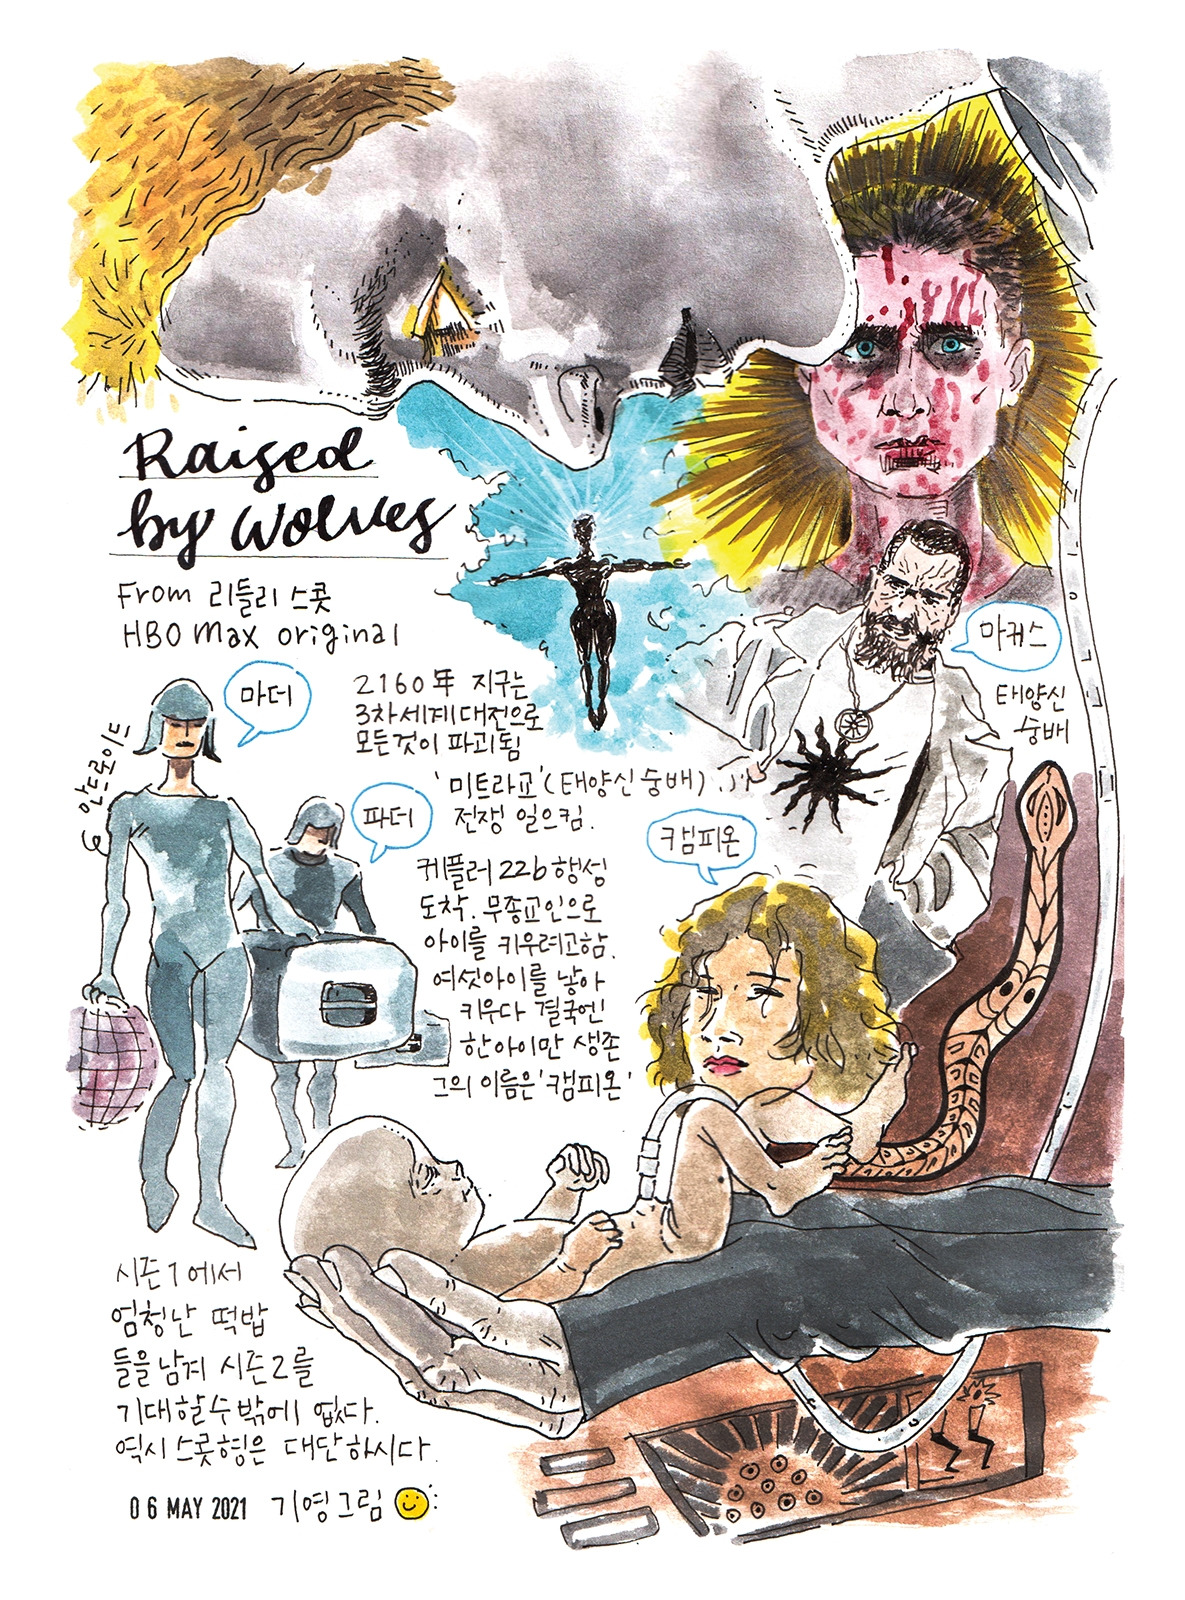 Raised
by wolves
From 리들리 스콧
HBO Max original
마더
안드로이드
파더
2160年 지구는
3차세계대전으로
모든것이 파괴됨
'미트라교'(태양신숭배)
전쟁 일으킴.
케플러 22b 행성
도착. 무종교인으로
아이를 키우려고함.
여섯아이를 낳아
키우다 결국엔
한아이만 생존
그의 이름은 '캠피온'
마커스
태양신
숭배
캠피온
시즌1에서
엄청난 떡밥
들을 남겨 시즌2를
기대할수밖에 없다.
역시 스콧형은 대단하시다.
06 MAY 2021 기영그림